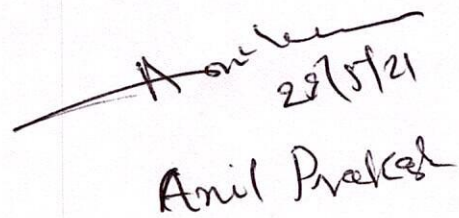 28/5/21
Anil Prakash